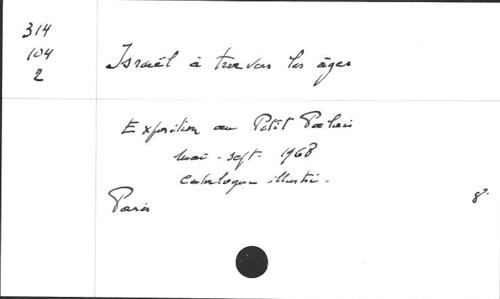 314
104
2
Israël à travers les âges
Exposition au Petit Palais
mai - sept. 1968
Catalogue illustré.
Paris
8°